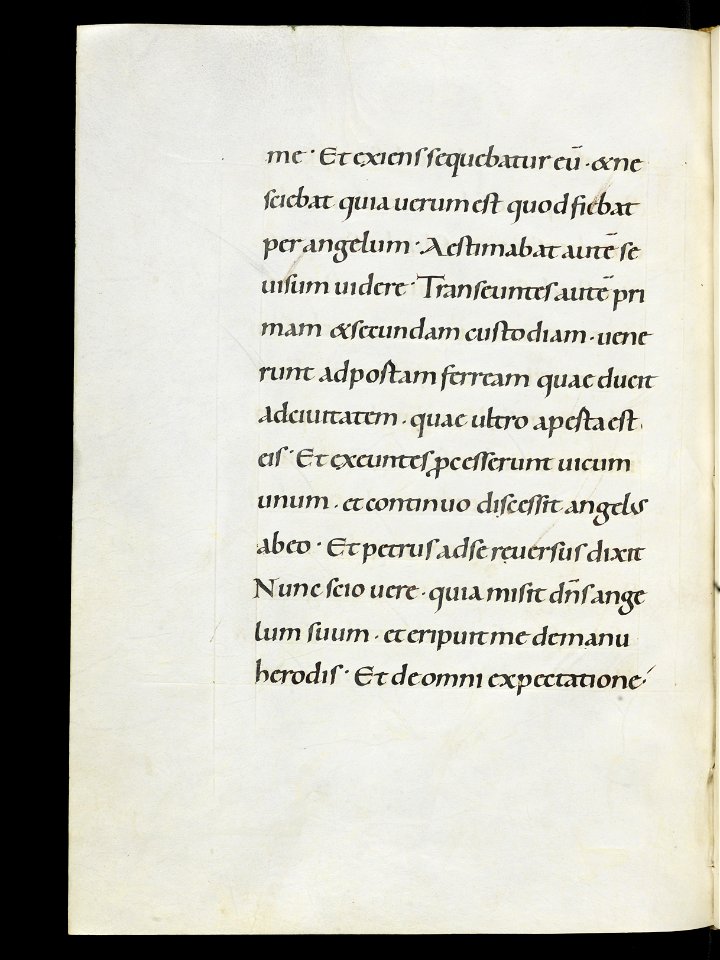 me · Et exiens sequebatur eū · & ne
sciebat quia uerum est quod fiebat
per angelum · Aestimabat autē se
uisum uidere · Transeuntes autē pri
mam & secundam custodiam · uene
runt ad postam ferream quae ducit
ad ciuitatem · quae ultro apesta est
eis · Et exeuntes ꝓcesserunt uicum
unum · et continuo discessit angelus
ab eo · Et petrus ad se reuersus dixit
Nunc scio uere · quia misit dn̄s ange
lum suum · et eripuit me de manu
herodis · Et de omni expectatione ·